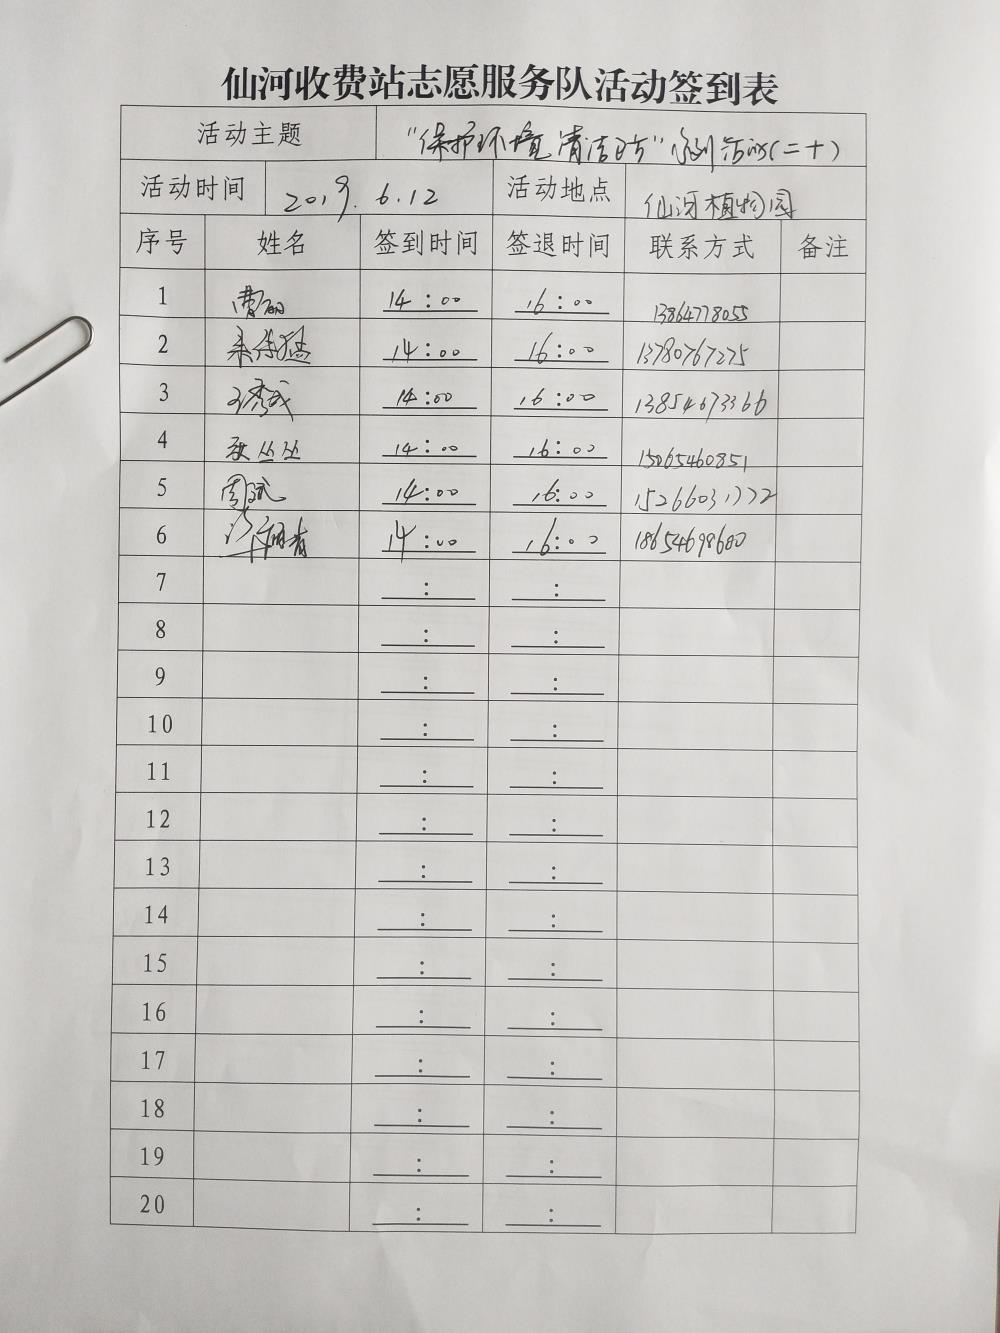 仙河收费站志愿服务队活动签到表
活动主题 "保护环境 清洁" 系列活动(二十)
活动时间 2019.6.12 活动地点 仙河植物园
序号 姓名 签到时间 签退时间 联系方式 备注
1 曹丽 14:00 16:00 13864778055
2 14:00 16:00 13780767275
3 14:00 16:00 13854673366
4 丛丛 14:00 16:00 15065460851
5 周斌 14:00 16:00 15266031772
6 14:00 16:00 18654698600
7 : :
8 : :
9 : :
10 : :
11 : :
12 : :
13 : :
14 : :
15 : :
16 : :
17 : :
18 : :
19 : :
20 : :